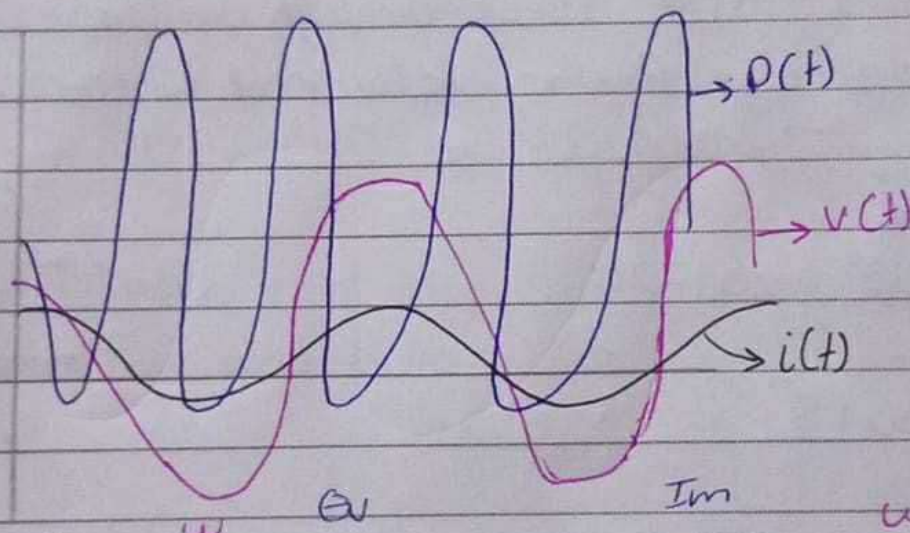 p(t)
v(t)
i(t)
Im